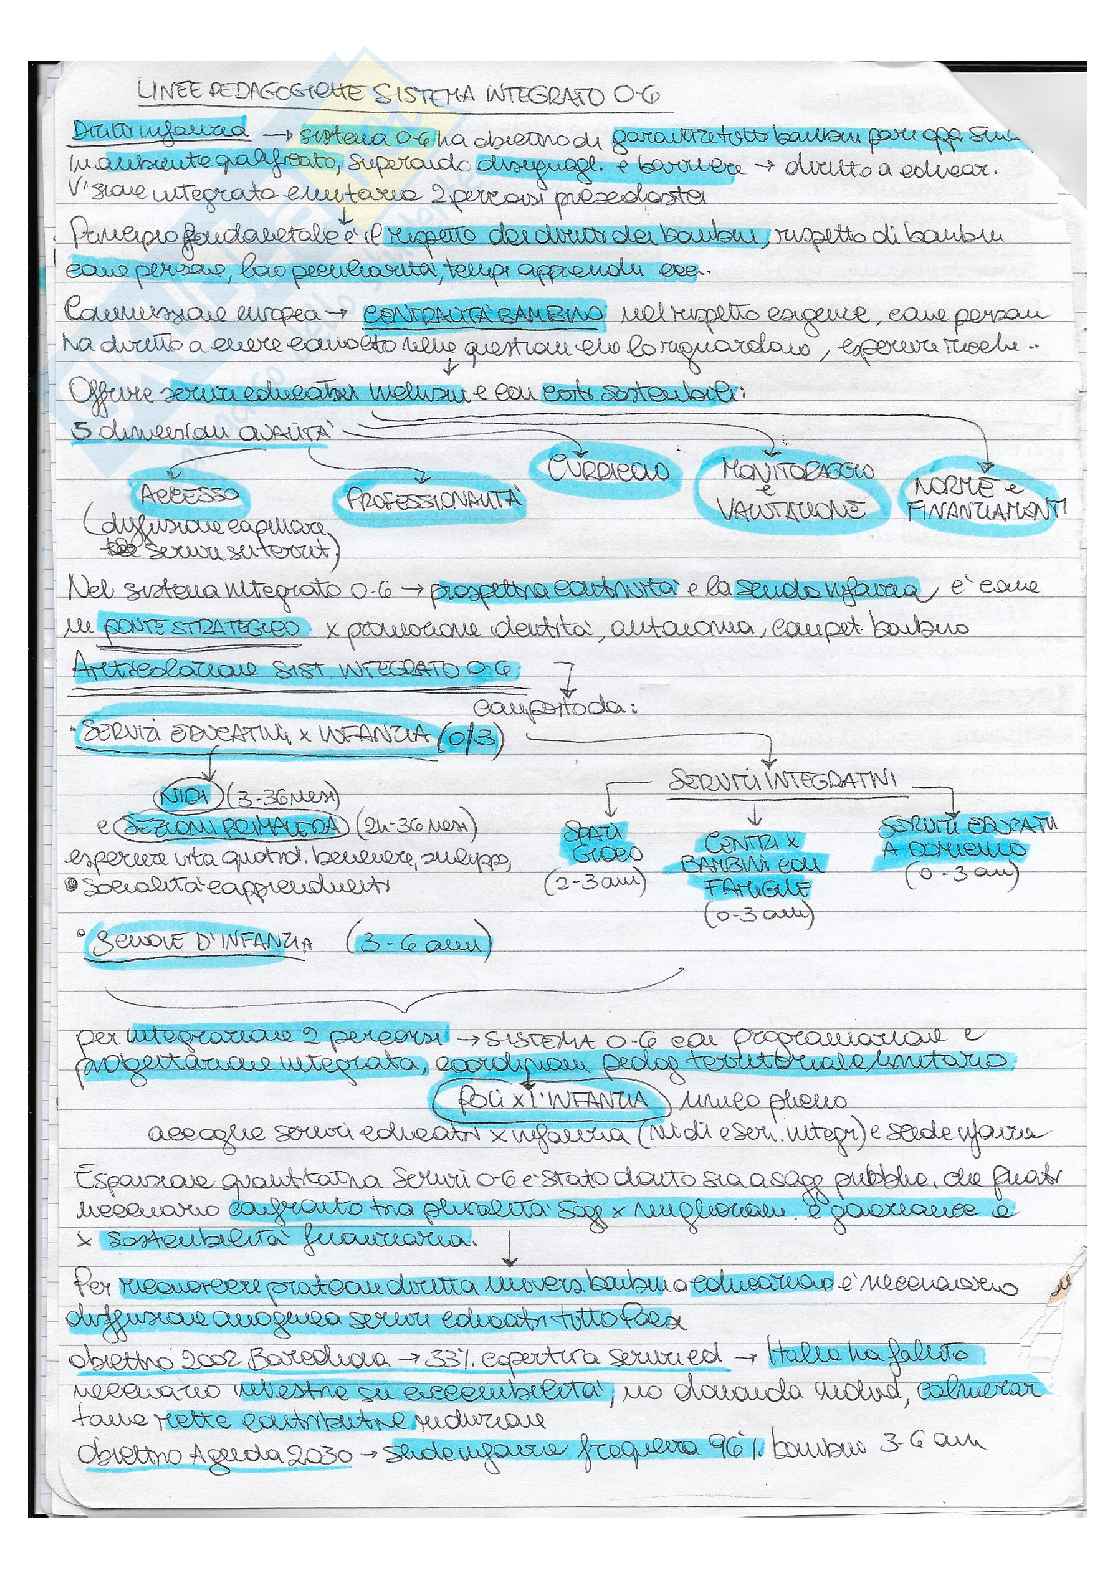 LINEE PEDAGOGICHE SISTEMA INTEGRATO 0-6
Diritti infanzia → sistema 0-6 ha obiettivo di garantire tutti bambini pari opp. Svil.
in ambiente qualificato, superando disuguagl. e barriere → diritto a educaz.
Visione integrata e unitaria 2 percorsi prescolastici
Principio fondamentale è il rispetto dei diritti dei bambini, rispetto di bambini
come persone, loro peculiarità, tempi apprendim ecc..
Commissione europea → CENTRALITÀ BAMBINO nel rispetto esigenze, come persona
ha diritto a essere coinvolto nelle questioni che lo riguardano, esperienze ricche..
Offrire servizi educativi inclusivi e con costi sostenibili:
5 dimensioni QUALITÀ
CURRICOLO MONITORAGGIO e VALUTAZIONE NORME e FINANZIAMENTI
ACCESSO PROFESSIONALITÀ
(diffusione capillare
servizi su territ.)
Nel sistema integrato 0-6 → prospettiva continuità e la scuola infanzia, è come
un PONTE STRATEGICO x promozione identità, autonomia, compet. bambino
Articolazione SIST INTEGRATO 0-6
composto da:
• SERVIZI EDUCATIVI x INFANZIA (0/3)
SERVIZI INTEGRATIVI
NIDI (3-36 mesi)
e SEZIONI PRIMAVERA (24-36 mesi)
esperienze vita quotid. benessere, sviluppo,
socialità e apprendimenti
SPAZI GIOCO (2-3 anni)
CENTRI x BAMBINI con FAMIGLIE (0-3 anni)
SERVIZI EDUCATIVI A DOMICILIO (0-3 anni)
• SCUOLE D'INFANZIA (3-6 anni)
per integrazione 2 percorsi → SISTEMA 0-6 con programmazione e
progettazione integrata, coordinam pedag territoriale unitario
POLI x L'INFANZIA unico plesso
accoglie servizi educativi x infanzia (nidi e serv. integr) e scuole infanzia
Espansione quantitativa servizi 0-6 è stato dovuto sia a sogg pubblici, che privati
necessario confronto tra pluralità sogg x miglioram. e governance e
x sostenibilità finanziaria.
Per riconoscere pratoam diritto univers bambini a educazione è necessario
diffusione omogenea servizi educativi tutto Paese
obiettivo 2002 Barcellona → 33% copertura servizi ed → Italia ha fallito
necessario investire su accessibilità, no domanda individ, calmierar
rette contributive riduzione
obiettivo Agenda 2030 → scuole infanzia frequenza 96% bambini 3-6 anni